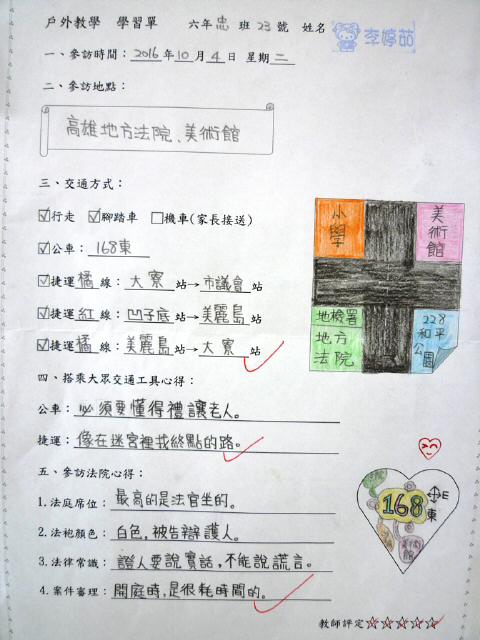 戶外教學 學習單 六年忠班23號 姓名 李婷茹
一、參訪時間：2016年10月4日 星期二
二、參訪地點：
高雄地方法院、美術館
三、交通方式：
☑行走 ☑腳踏車 □機車(家長接送)
☑公車：168東
☑捷運橘線：大寮站→市議會站
☑捷運紅線：凹子底站→美麗島站
☑捷運橘線：美麗島站→大寮站
小學
美術館
地檢署
地方法院
228和平公園
四、搭乘大眾交通工具心得：
公車：必須要懂得禮讓老人。
捷運：像在迷宮裡找終點的路。
五、參訪法院心得：
1.法庭席位：最高的是法官坐的。
2.法袍顏色：白色，被告辯護人。
3.法律常識：證人要說實話，不能說謊言。
4.案件審理：開庭時，是很耗時間的。
168
E
東
美術館
教師評定☆☆☆☆☆